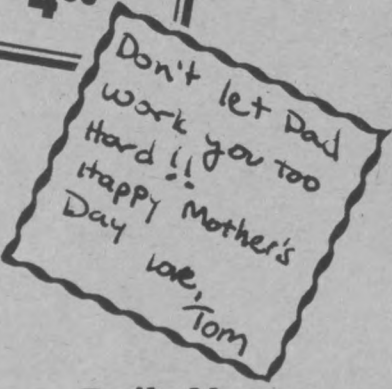 Don't let Dad
work you too
Hard!!
Happy Mother's
Day
Love,
Tom